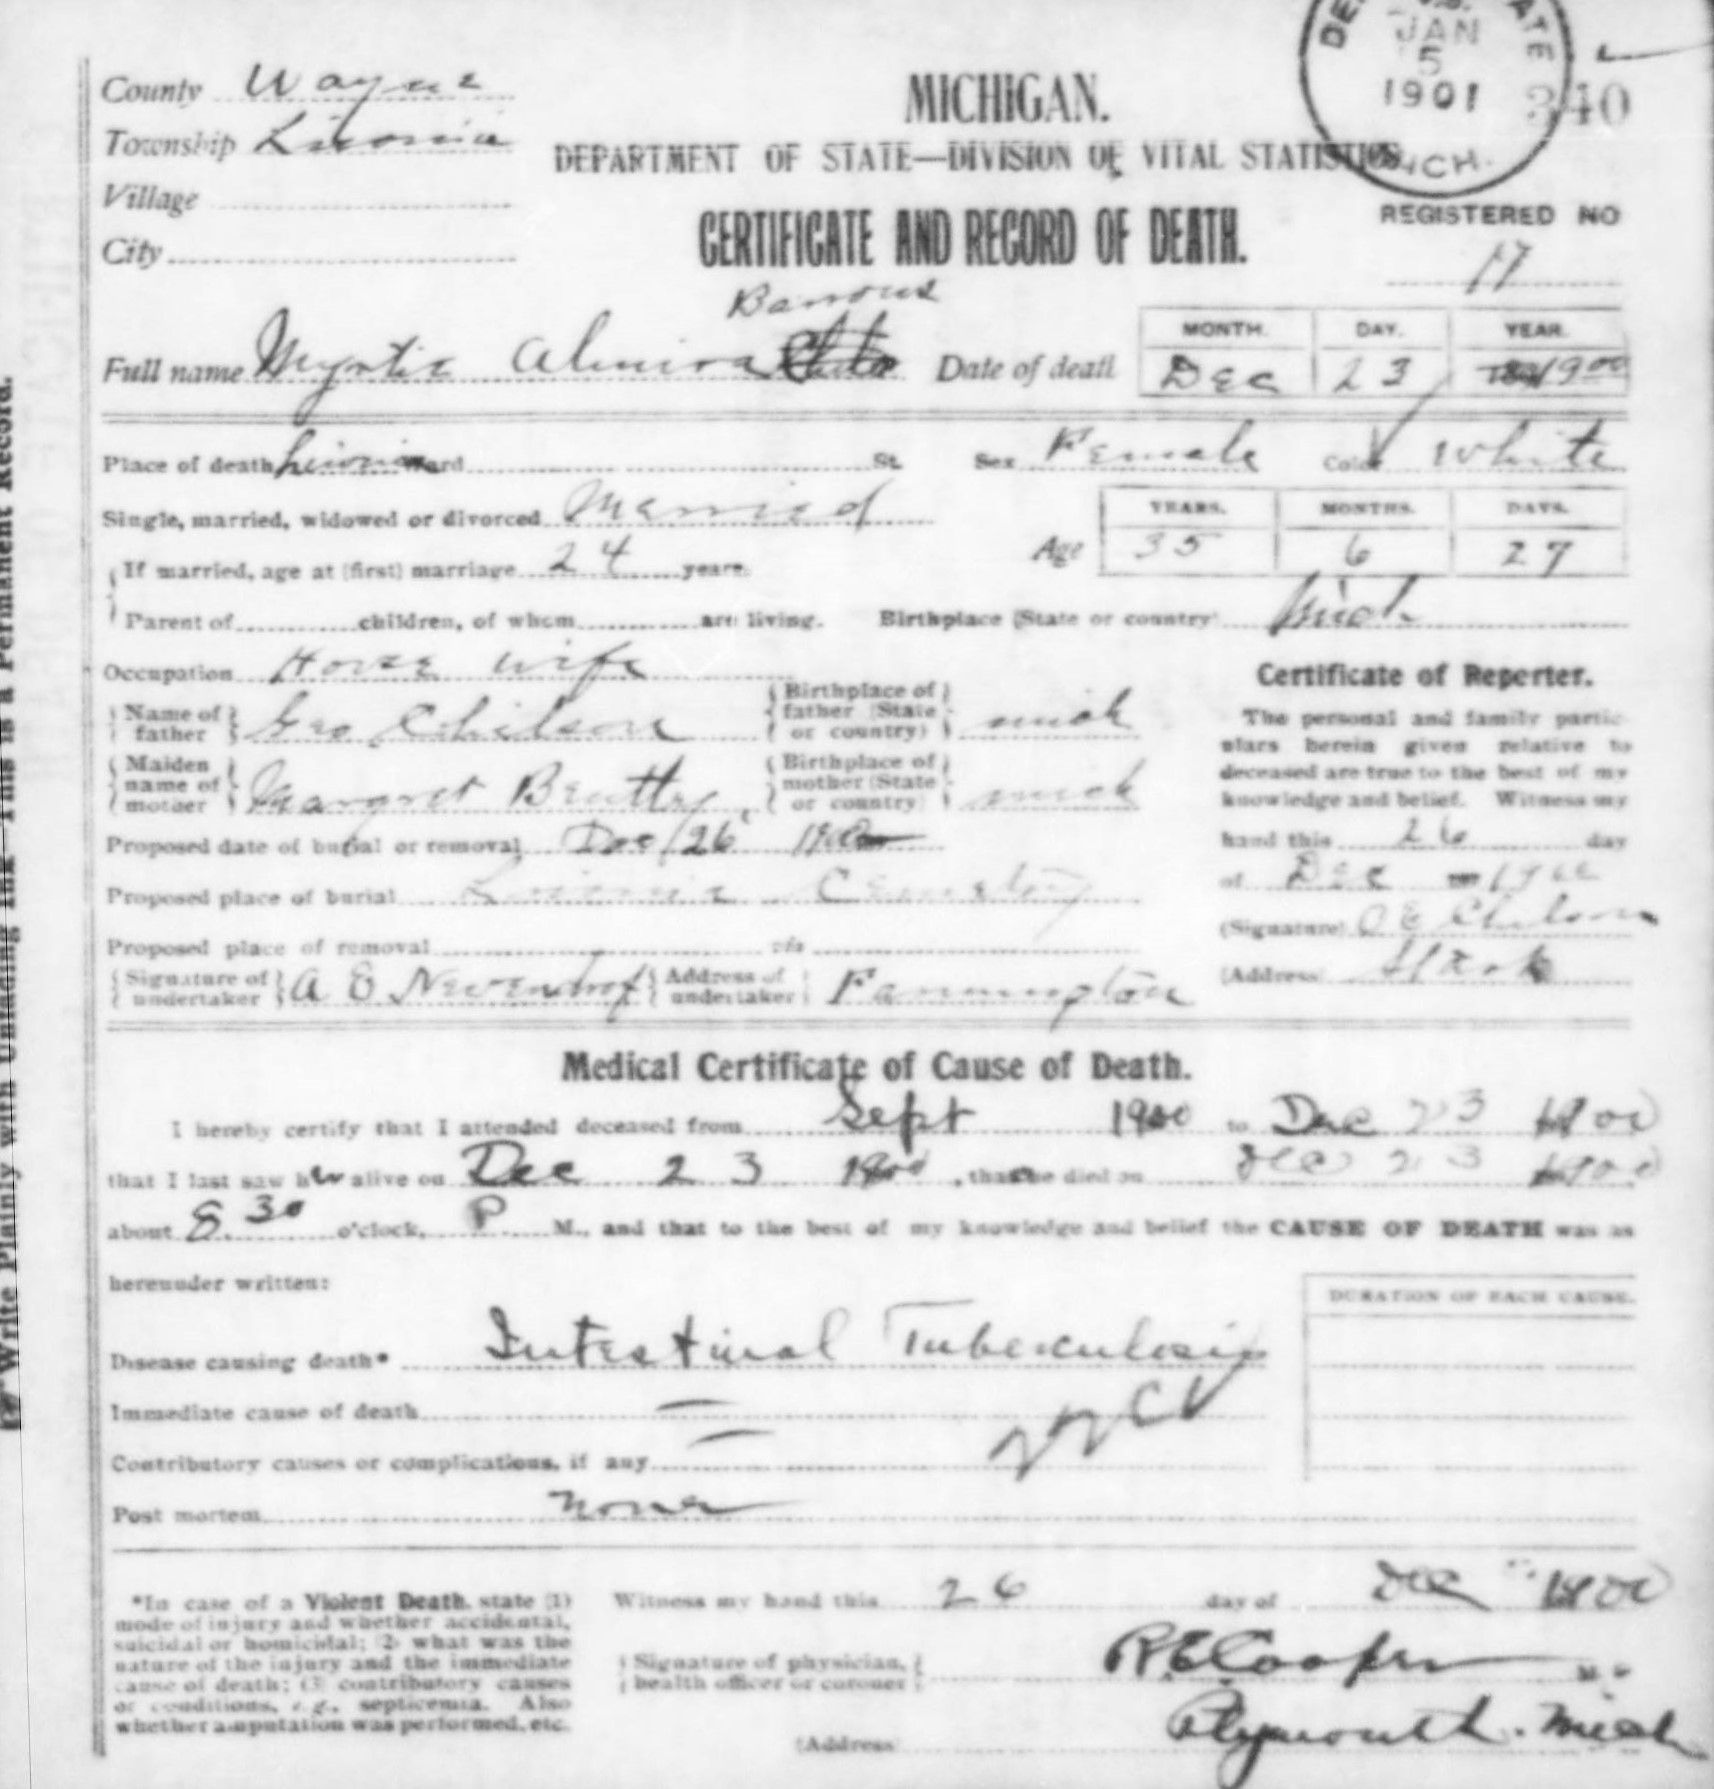 JAN
5
1901
MICH.
340
County Wayne
Township Livonia
Village
City
MICHIGAN.
DEPARTMENT OF STATE—DIVISION OF VITAL STATISTICS
CERTIFICATE AND RECORD OF DEATH.
REGISTERED NO
17
Barrows
Full name Myrtie Almira Date of death
MONTH. DAY. YEAR.
Dec 23 1900
Place of death Livonia Ward St. Sex Female Color White
Single, married, widowed or divorced Married
If married, age at (first) marriage 24 years.
Age YEARS. MONTHS. DAYS.
35 6 27
Parent of children, of whom are living. Birthplace (State or country) Mich
Occupation House wife
Name of father Geo Chilson Birthplace of father (State or country) mich
Maiden name of mother Margret Beutler Birthplace of mother (State or country) mich
Proposed date of burial or removal Dec 26 1900
Proposed place of burial Livonia Cemetery
Proposed place of removal via
Signature of undertaker A E Address of undertaker Farmington
Certificate of Reporter.
The personal and family partic-
ulars herein given relative to
deceased are true to the best of my
knowledge and belief. Witness my
hand this 26 day
of Dec 1900
(Signature) O E Chilson
(Address)
Medical Certificate of Cause of Death.
I hereby certify that I attended deceased from Sept 1900 to Dec 23 1900
that I last saw her alive on Dec 23 1900, that she died on Dec 23 1900
about 8.30 o'clock, P M., and that to the best of my knowledge and belief the CAUSE OF DEATH was as
hereunder written:
DURATION OF EACH CAUSE.
Disease causing death* Intestinal Tuberculosis
Immediate cause of death —
Contributory causes or complications, if any —
Post mortem none
*In case of a Violent Death, state (1)
mode of injury and whether accidental,
suicidal or homicidal; (2) what was the
nature of the injury and the immediate
cause of death; (3) contributory causes
or conditions, e.g., septicemia. Also
whether amputation was performed, etc.
Witness my hand this 26 day of Dec 1900
Signature of physician, health officer or coroner R E Cooper M. D.
(Address) Plymouth. Mich
Write Plainly with Unfading Ink—This is a Permanent Record.